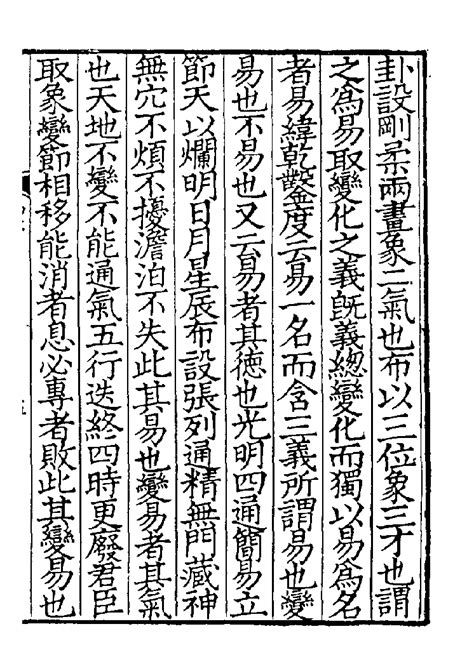 卦設剛柔兩畫象二氣也布以三位象三才也謂
之爲易取變化之義旣義緫變化而獨以易爲名
者易緯乾鑿度云易一名而含三義所謂易也變
易也不易也又云易者其德也光明四通簡易立
節天以爛明日月星辰布設張列通精無門藏神
無穴不煩不擾澹泊不失此其易也變易者其氣
也天地不變不能通氣五行迭終四時更廢君臣
取象變節相移能消者息必專者敗此其變易也